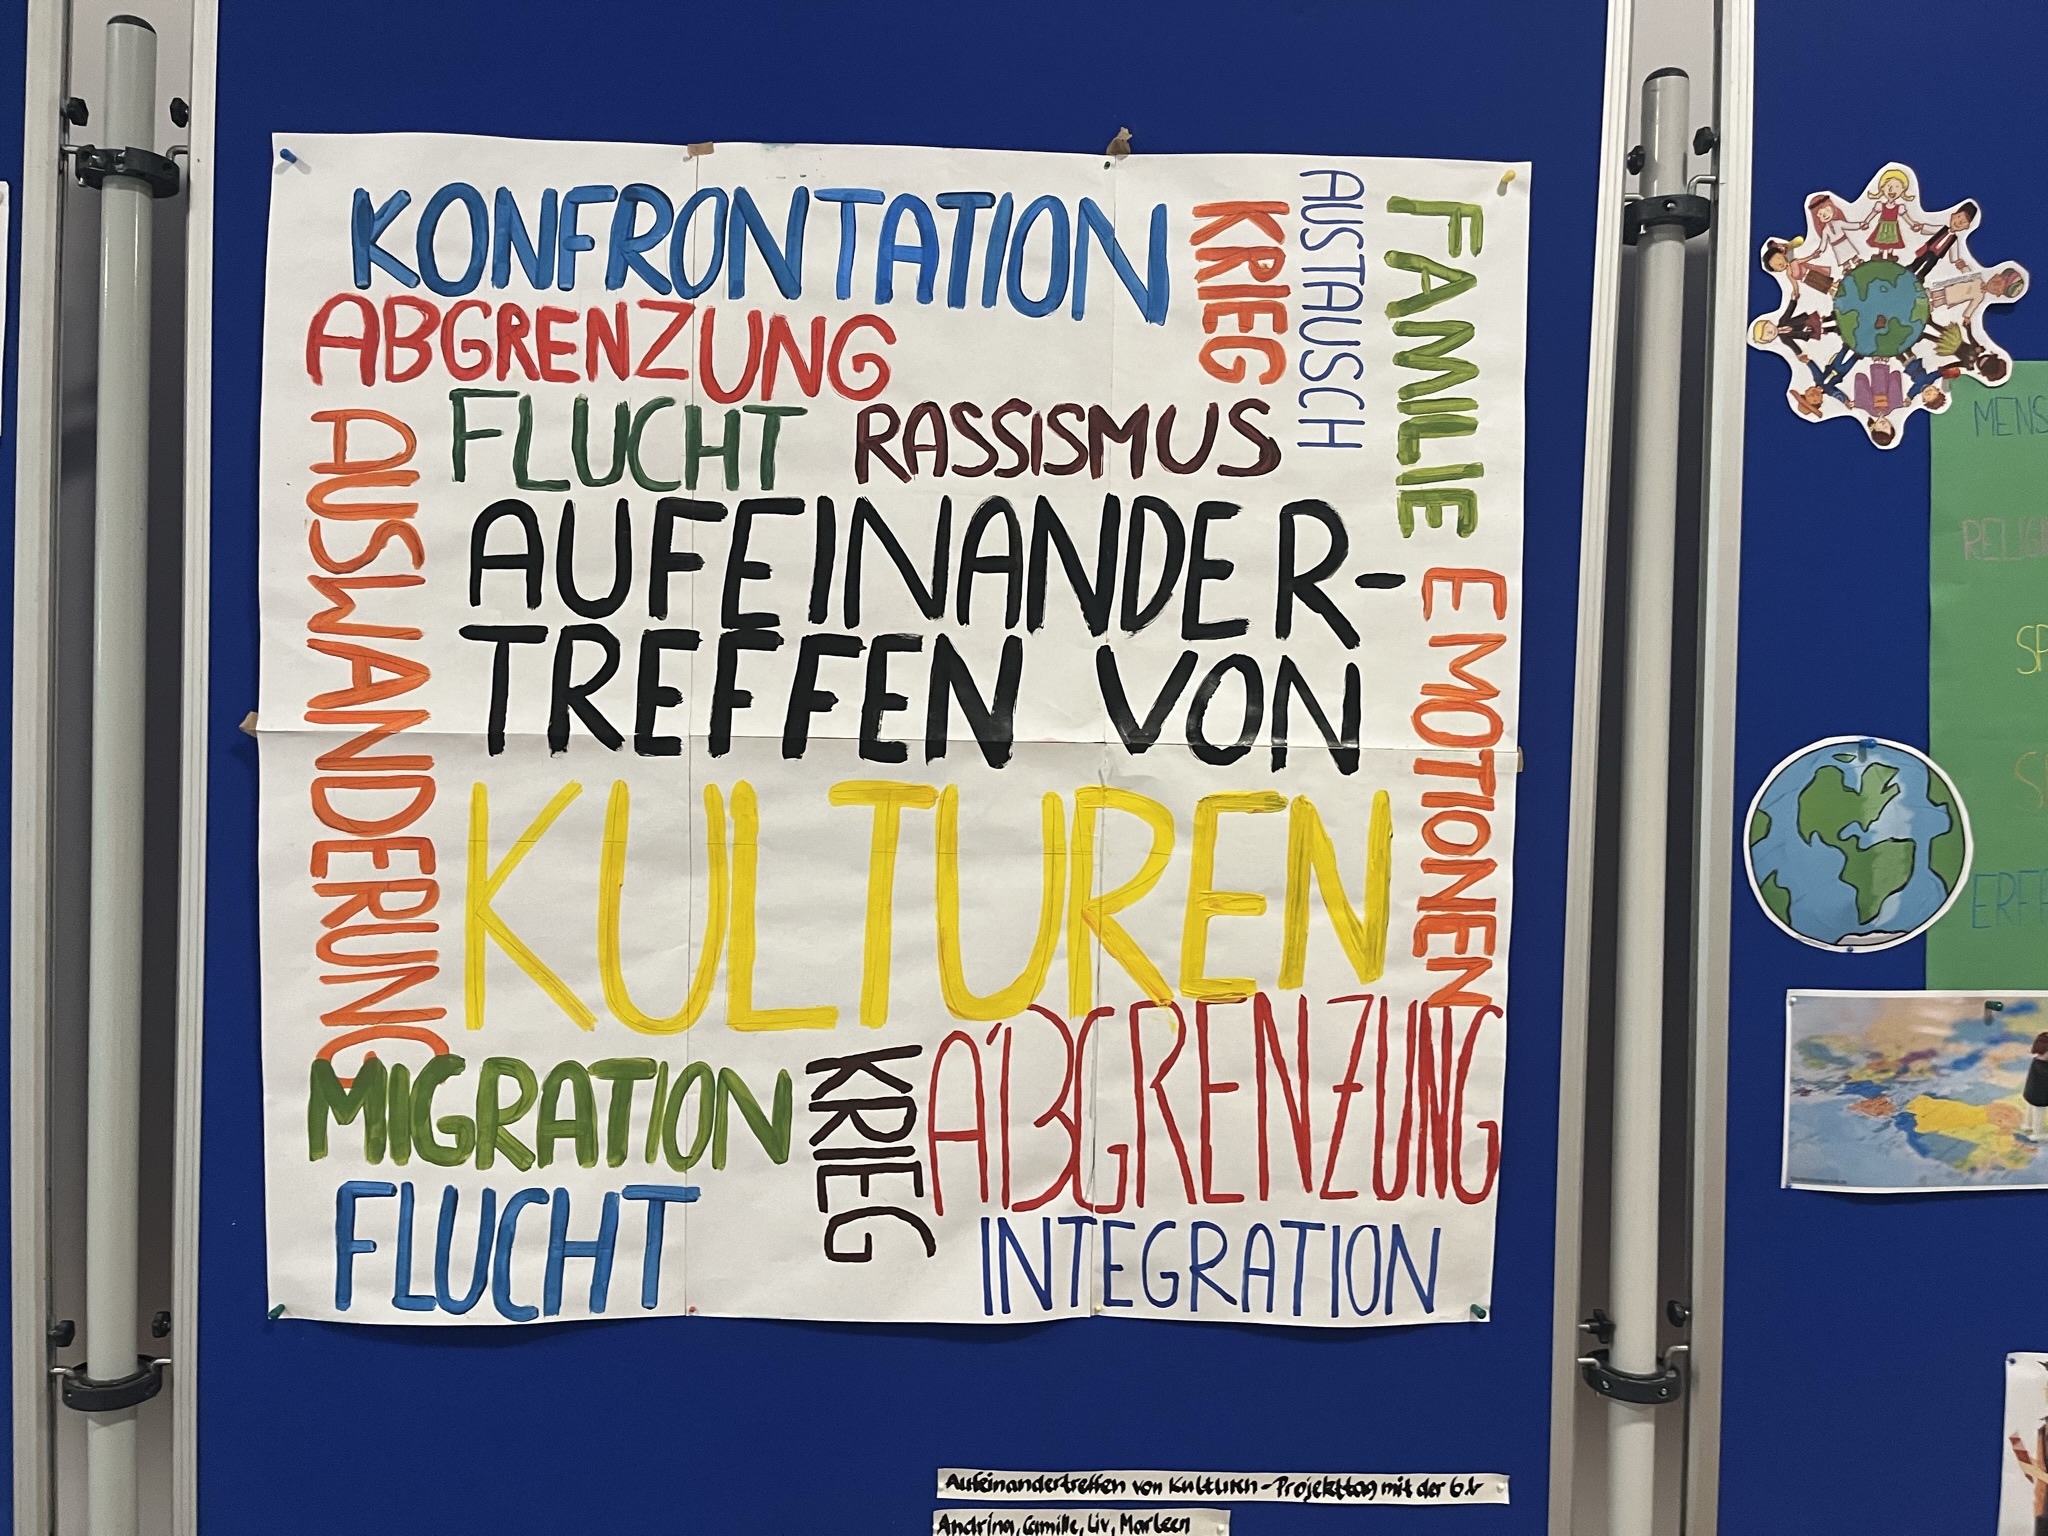 KONFRONTATION
KRIEG
AUSTAUSCH
FAMILIE
ABGRENZUNG
FLUCHT RASSISMUS
AUSWANDERUNG
AUFEINANDER-
TREFFEN VON
KULTUREN
EMOTIONEN
MIGRATION
KRIEG
ABGRENZUNG
FLUCHT
INTEGRATION
Aufeinandertreffen von Kulturen - Projekttag mit der 6.b
Andrina, Camille, Liv, Marleen
MENS
RELIG
SP
ERF